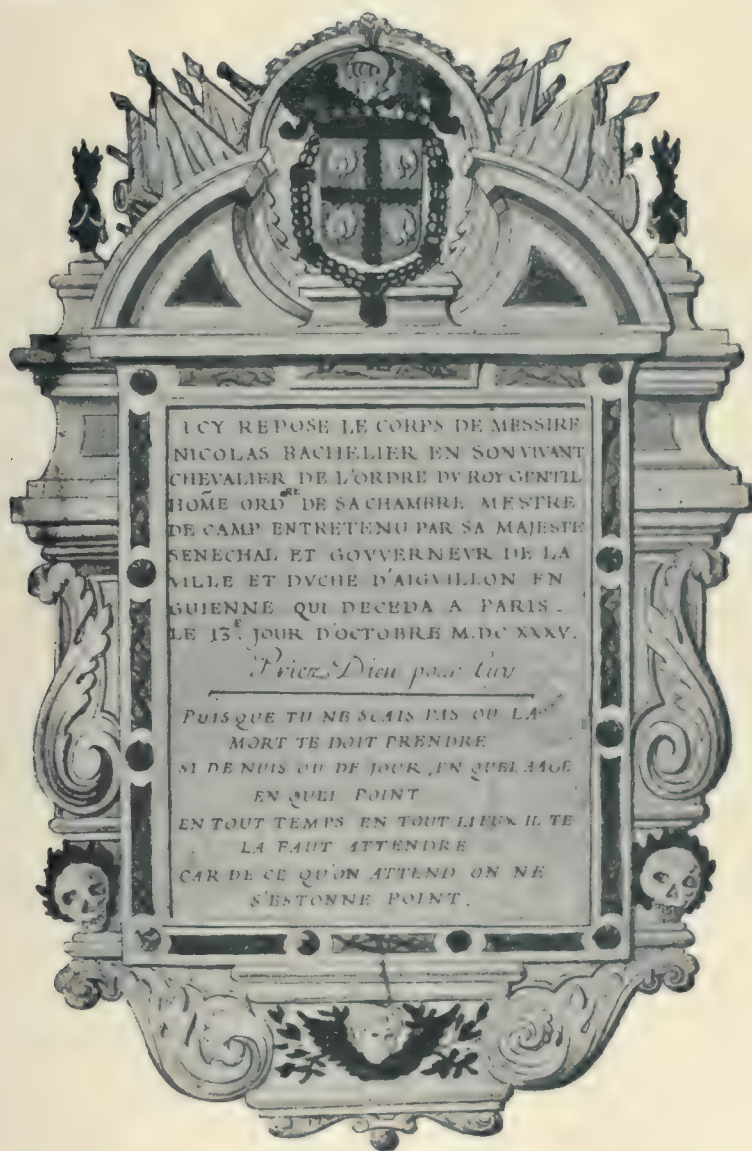 ICY REPOSE LE CORPS DE MESSIRE
NICOLAS BACHELIER EN SON VIVANT
CHEVALIER DE L'ORDRE DV ROY GENTIL
HOM̃E ORD^RE DE SA CHAMBRE MESTRE
DE CAMP ENTRETENU PAR SA MAJESTE
SENECHAL ET GOVVERNEVR DE LA
VILLE ET DVCHE D'AIGVILLON EN
GUIENNE QUI DECEDA A PARIS.
LE 13^E. JOUR D'OCTOBRE M.DC XXXV.
Priez Dieu pour luy
PUISQUE TU NE SCAIS PAS OU LA
MORT TE DOIT PRENDRE
SI DE NUIS OU DE JOUR, EN QUEL AAGE
EN QUEL POINT
EN TOUT TEMPS EN TOUT LIEUX IL TE
LA FAUT ATTENDRE
CAR DE CE QU'ON ATTEND ON NE
S'ESTONNE POINT.